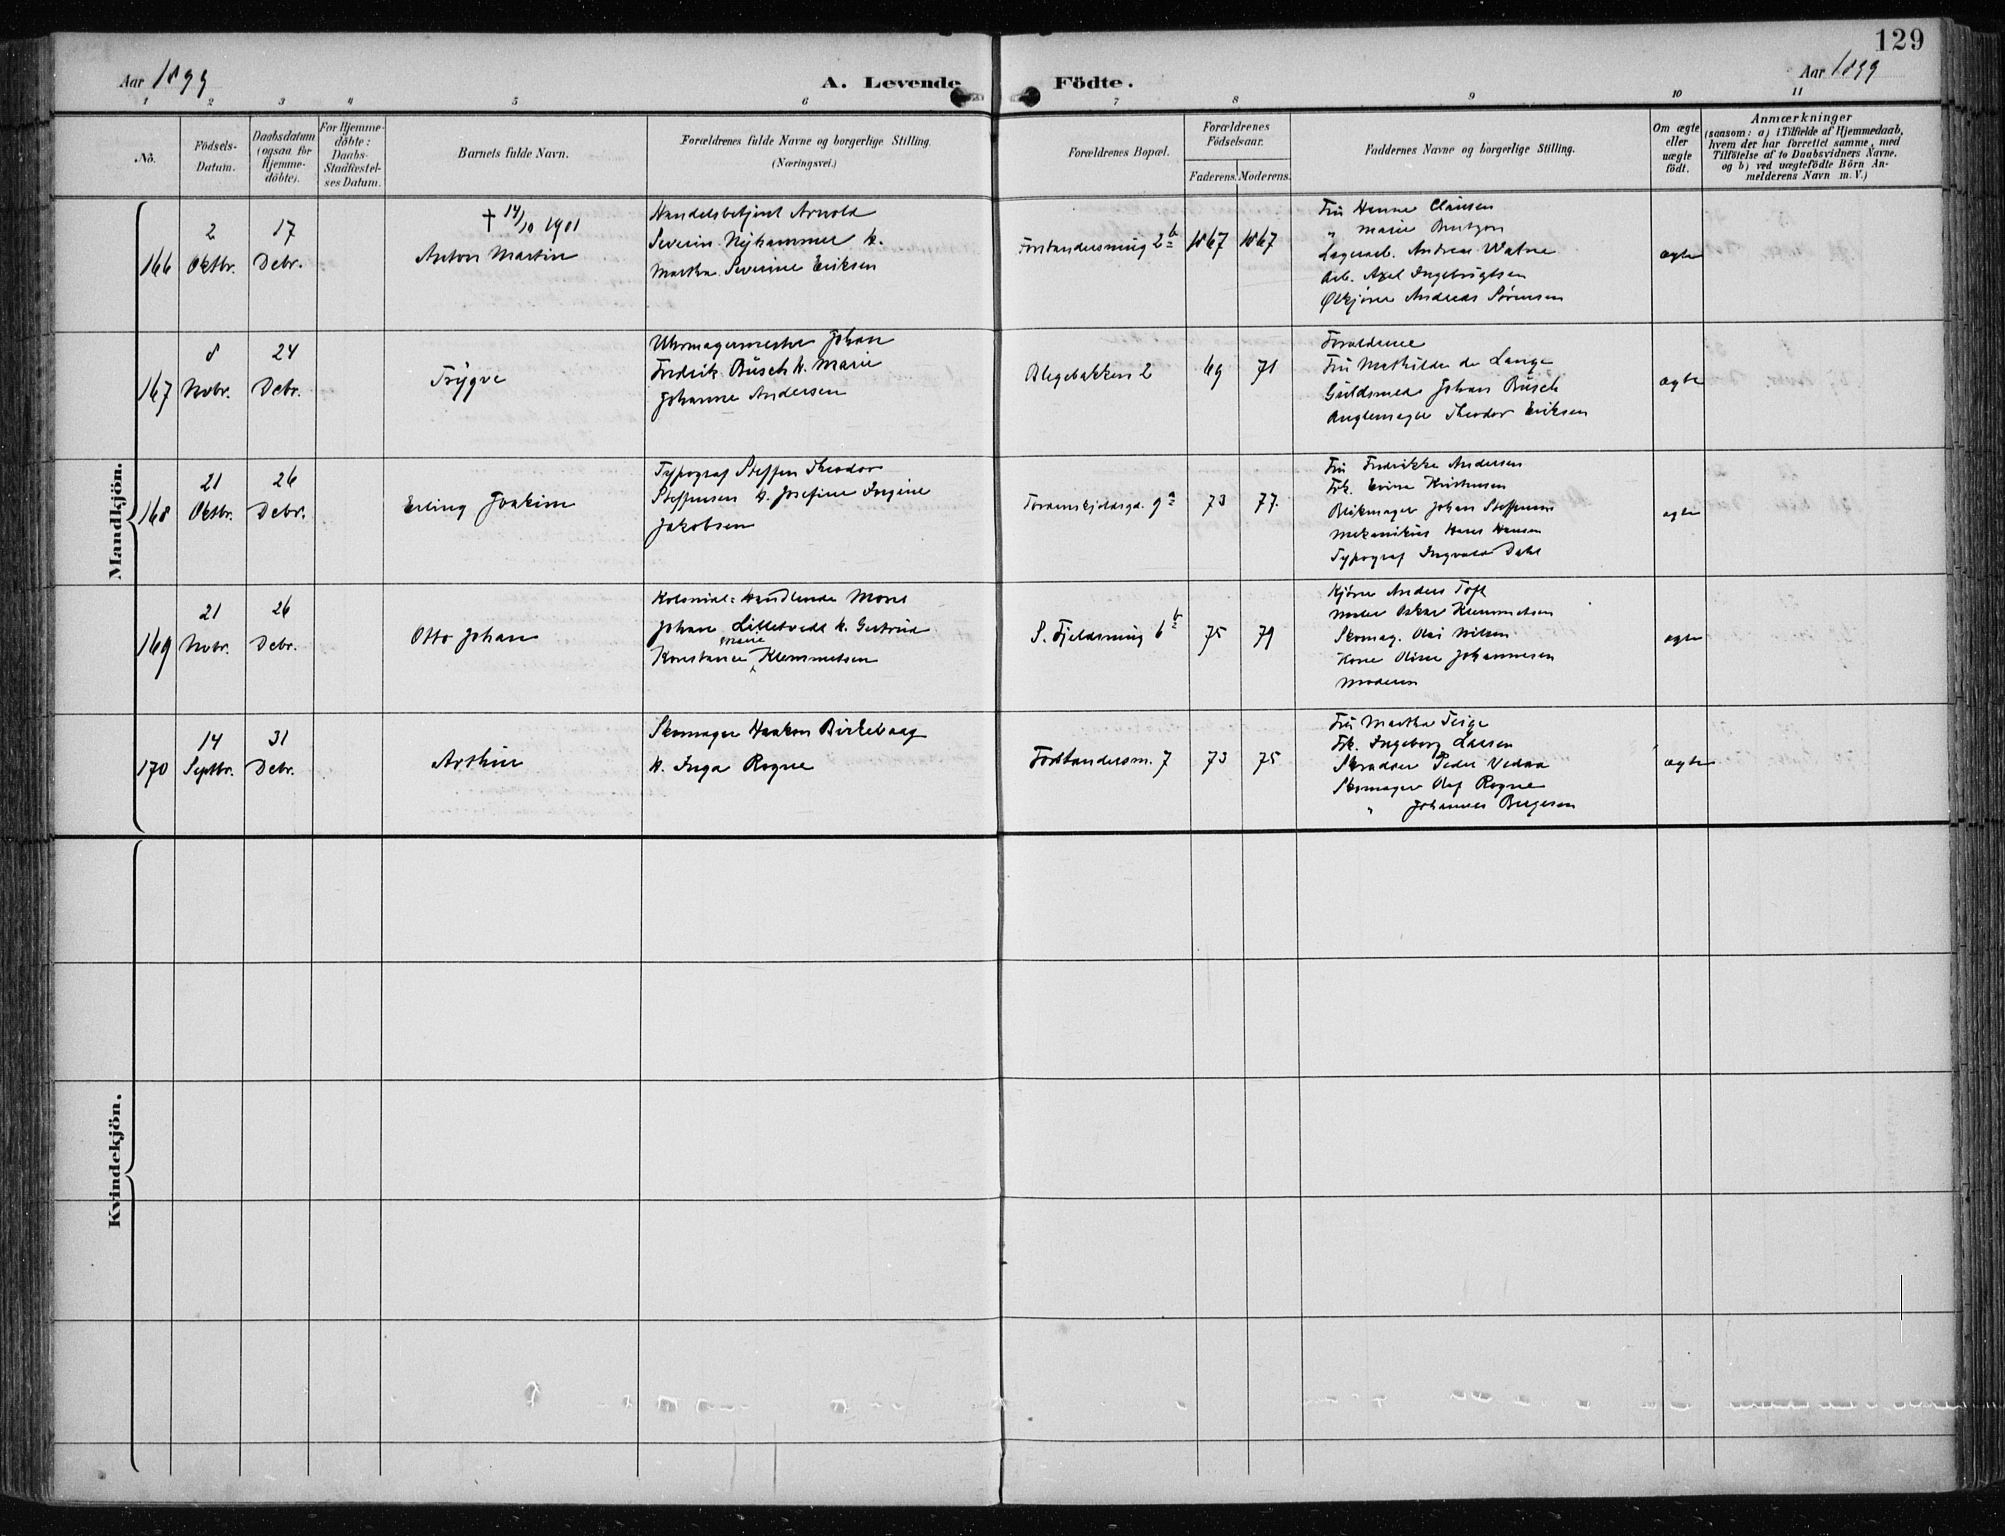 129
Aar 1899
A. Levende
Födte.
Aar 1899
1 2 3 4 5 6 7 8 9 10 11
No.
Födsels-Datum.
Daabsdatum (ogsaa for Hjemme-döbte).
For Hjemme-döbte: Daabs-Stadfæstel-ses Datum.
Barnets fulde Navn.
Forældrenes fulde Navne og borgerlige Stilling. (Næringsvei.)
Forældrenes Bopæl.
Forældrenes Födselsaar.
Faderens. Moderens.
Faddernes Navne og borgerlige Stilling.
Om ægte eller uægte födt.
Anmærkninger
(saasom: a) i Tilfælde af Hjemmedaab,
hvem der har forrettet samme, med
Tilföielse af to Daabsvidners Navne.
og b) ved uægtefödte Börn An-
melderens Navn m. V.)
Mandkjön.
166
2 Oktbr.
17 Debr.
† 14/10 1901
Anton Martin
Handelsbetjent Arnold
Severin Nyhammer h.
Martha Severine Eriksen
Forstandersmug 2b
1867 1867
Fru Hanne Clausen
" Marie
Lagerarb. Andreas Watne
Arb. Axel Ingebrigtsen
Ølkjører Andreas Sørensen
ægte
167
8 Novbr.
24 Debr.
Trygve
Uhrmagermester Johan
Fredrik Busch h. Marie
Johanne Andersen
Blegebakken 2
69 71
Forældrene
Fru Mathilde de Lange
Guldsmed Johan Busch
Theodor Eriksen
ægte
168
21 Oktbr.
26 Debr.
Erling Joakim
Typograf Steffen Theodor
Steffensen h. Josefine Ingine
Jakobsen
Tordenskjoldsgd. 9a
73 77.
Fru Fredrikke Andersen
Frk. Kristensen
Blikmager Johan Steffensen
Mekanikus Hans Hansen
Typograf Ingvald Dahl
ægte
169
21 Novbr.
26 Debr.
Otto Johan
Kolonial-Handlende Mons
Johan Lilletvedt h. Gertrud
Konstance Marie Klemmetsen
S. Fjeldsmug 6b
75 79
Kjører Anders Toft
Maler Oskar Klemmetsen
Skomag. Nilsen
Kone Johannesen
Moderen
ægte
170
14 Septbr.
31 Debr.
Arthur
Skomager Haakon Birkehaag
h. Inga Rogne
Forstandersm. 7
73 75
Fru Martha Teige
Frk. Ingeborg Larsen
Skrædder Peder Vedaa
Skomager Olaf Rogne
" Johannes Bergesen
ægte
Kvindekjön.